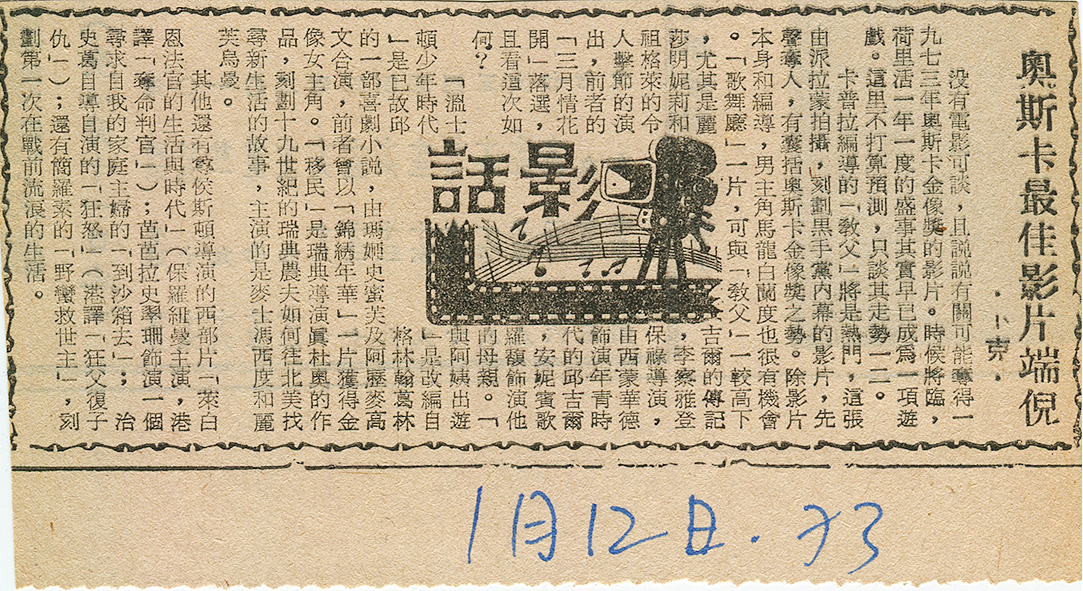 奧斯卡最佳影片端倪
·小克·
没有電影可談,且說說有關可能奪得一
九七三年奧斯卡金像獎的影片。時候將臨,
荷里活一年一度的盛事其實早已成爲一項遊
戲。這里不打算預測,只談其走勢一二。
卡普拉編導的「教父」將是熱門,這張
由派拉蒙拍攝,刻劃黑手黨内幕的影片,先
聲奪人,有囊括奧斯卡金像獎之勢。除影片
本身和編導,男主角馬龍白蘭度也很有機會
。「歌舞廳」一片,可與「教父」一較高下
,尤其是麗
莎明妮莉和
祖格萊的令
人擊節的演
出,前者的
「三月情花
開」落選,
且看這次如
何?
「溫士
頓少年時代
」是已故邱
影話
吉爾的傳記
,李察雅登
保祿導演,
由西蒙華德
飾演年青時
代的邱吉爾
,安妮賓歌
羅馥飾演他
的母親。「
與阿姨出遊
」是改編自
格林翰葛林
的一部喜劇小說,由瑪姬史蜜芙及阿歷麥高
文合演,前者曾以「錦綉年華」一片獲得金
像女主角。「移民」是瑞典導演眞杜奧的作
品,刻劃十九世紀的瑞典農夫如何往北美找
尋新生活的故事,主演的是麥士馮西度和麗
芙烏曼。
其他還有尊侯斯頓導演的西部片「萊白
恩法官的生活與時代」(保羅紐曼主演,港
譯「奪命判官」);芭芭拉史翠珊飾演一個
尋求自我的家庭主婦的「到沙箱去」;治
史葛自導自演的「狂怒」(港譯「狂父復子
仇」);還有簡羅素的「野蠻救世主」,刻
劃第一次在戰前流浪的生活。
1月12日.73